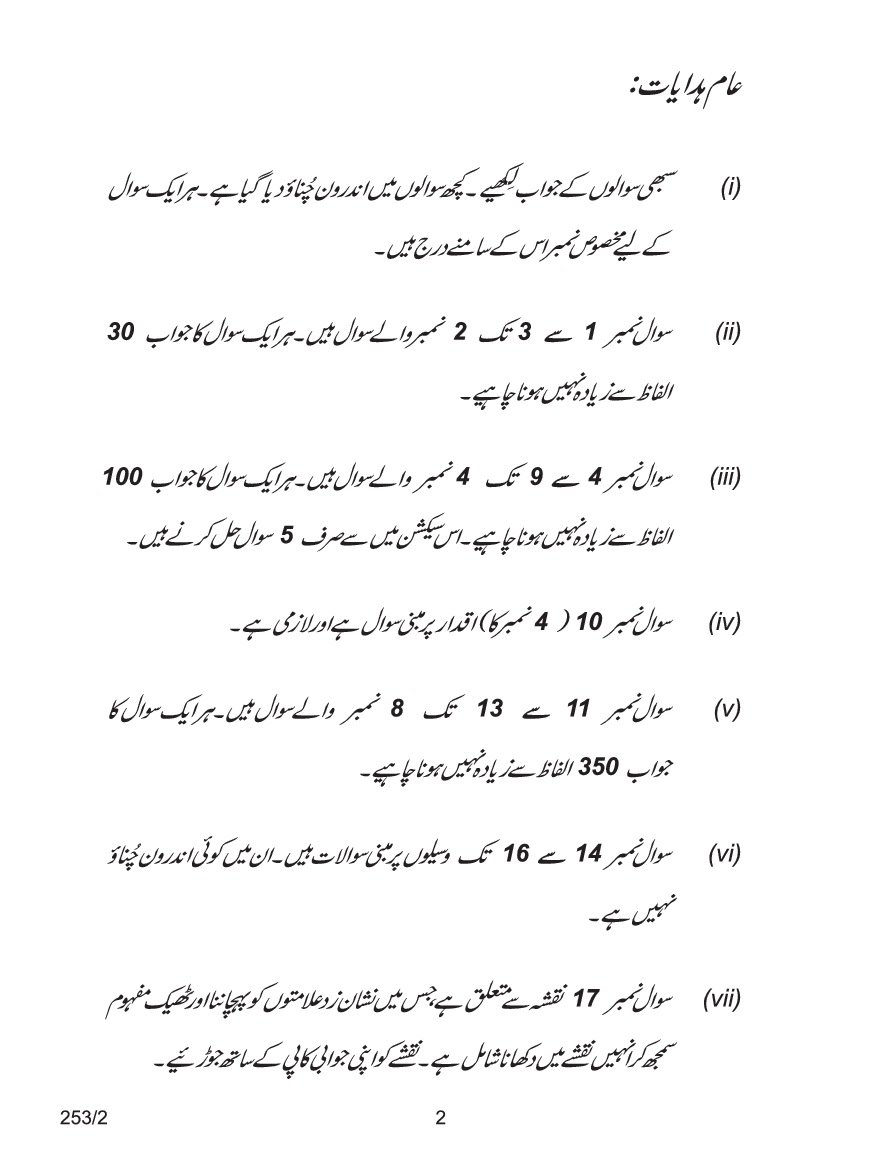 عام ہدایات:
(i) سبھی سوالوں کے جواب لِکھیے ۔ کچھ سوالوں میں اندرون چُناؤ دیا گیا ہے۔ ہر ایک سوال
کے لیے مخصوص نمبر اس کے سامنے درج ہیں۔
(ii) سوال نمبر 1 سے 3 تک 2 نمبر والے سوال ہیں۔ ہر ایک سوال کا جواب 30
الفاظ سے زیادہ نہیں ہونا چاہیے۔
(iii) سوال نمبر 4 سے 9 تک 4 نمبر والے سوال ہیں۔ ہر ایک سوال کا جواب 100
الفاظ سے زیادہ نہیں ہونا چاہیے۔ اس سیکشن میں سے صرف 5 سوال حل کرنے ہیں۔
(iv) سوال نمبر 10 ( 4 نمبر کا) اقدار پر مبنی سوال ہے اور لازمی ہے۔
(v) سوال نمبر 11 سے 13 تک 8 نمبر والے سوال ہیں۔ ہر ایک سوال کا
جواب 350 الفاظ سے زیادہ نہیں ہونا چاہیے۔
(vi) سوال نمبر 14 سے 16 تک وسیلوں پر مبنی سوالات ہیں۔ ان میں کوئی اندرون چُناؤ
نہیں ہے۔
(vii) سوال نمبر 17 نقشہ سے متعلق ہے، جس میں نشان زد علامتوں کو پہچاننا اور ٹھیک مفہوم
سمجھ کر انہیں نقشے میں دکھانا شامل ہے۔ نقشے کو اپنی جوابی کاپی کے ساتھ جوڑئیے۔
253/2 2